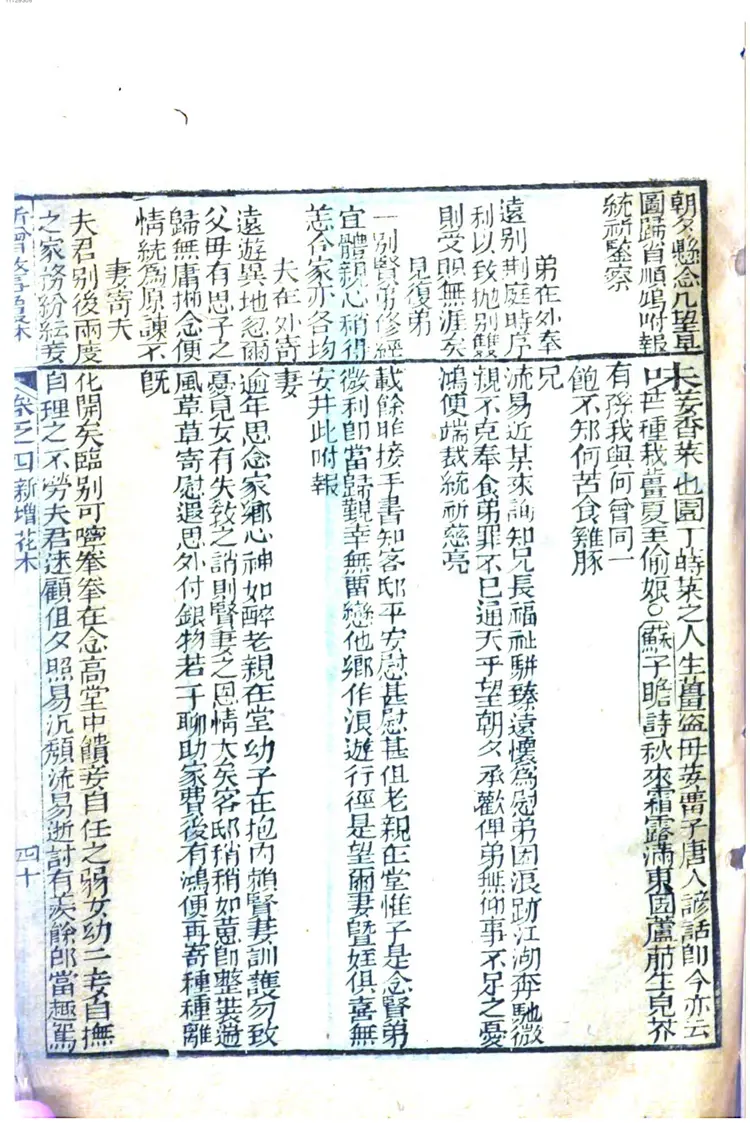 朝夕懸念凡望早
圖歸省順鴻附報
統祈鑒察
味姜香菜也園丁蒔菜之人生薑盜母姜留子唐人諺話即今亦云
芒種栽薑夏至偷娘○蘇子瞻詩秋來霜露滿東園蘆菔生兒芥
有孫我與何曾同一
飽不知何苦食雞豚
弟在外奉兄
遠別荆庭時序流易近某來詢知兄長福祉駢臻遠懷為慰弟因浪跡江湖奔馳微
利以致拋別雙親不克奉食弟罪不已通天乎望朝夕承歡俾弟無仰事不足之憂
則受賜無涯矣鴻便端裁統祈慈亮
兄復弟
一別賢弟修經載餘昨接手書知客邸平安慰甚慰甚但老親在堂惟子是念賢弟
宜體親心稍得微利即當歸覲幸無留戀他鄉作浪遊行徑是望爾妻暨姪俱喜無
恙合家亦各均安并此附報
夫在外寄妻
遠遊異地忽爾逾年思念家鄉心神如醉老親在堂幼子在抱內賴賢妻訓護勿致
父母有思子之憂兒女有失敎之誚則賢妻之恩情大矣客邸稍稍如意即整裝遄
歸無庸掛念便風草草寄慰遐思外付銀物若干聊助家費後有鴻便再寄種種離
情統為原諒不既
妻寄夫
夫君別後兩度化開矣臨別叮嚀拳拳在念高堂中饋妾自任之弱女幼子妾自撫
之家務紛紜妾自理之不勞夫君速顧但夕照易沉頹流易逝討有羨餘即當趣駕
新增故事尋源 卷之四新增花木 四十